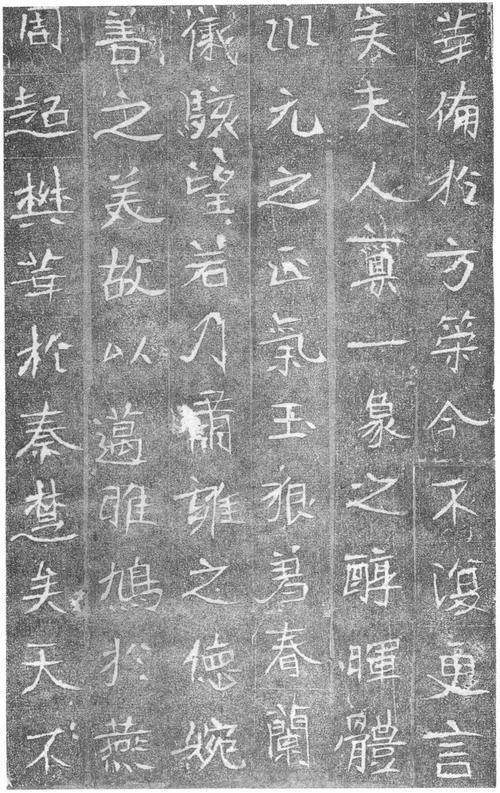 華備於方策今不復更言
矣夫人稟一象之醇暉體
巛元之正氣玉狠著春蘭
儀駭望若乃肅雍之德婉
善之美故以邁雎鳩於燕
周超樊華於秦楚矣天不